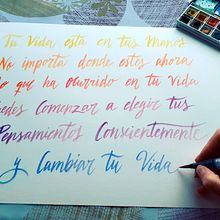 Tu Vida está en tus Manos
No importa donde estes ahora
lo que ha ocurrido en tu Vida
edes Comenzar a elegir tus
Pensamientos Conscientemente
y Cambiar tu Vida